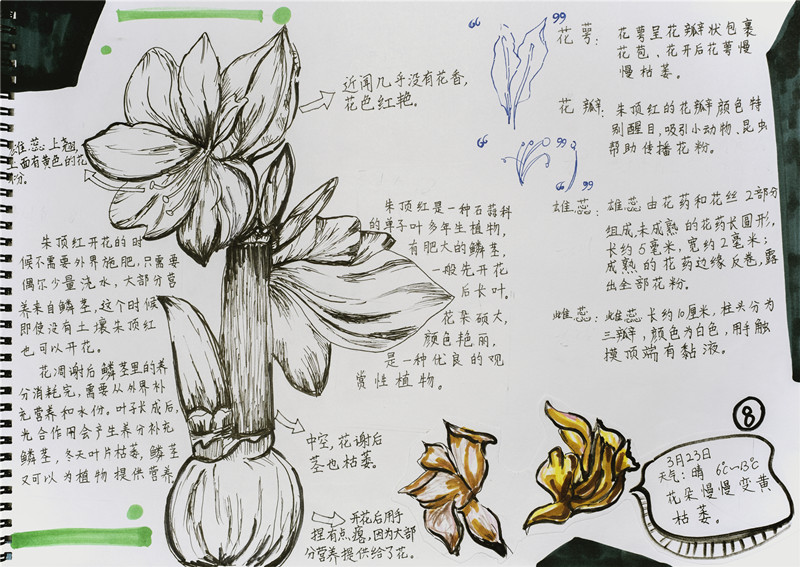 近闻几乎没有花香,
花色红艳。
雄蕊上翘,
上面有黄色的花
粉。
朱顶红开花的时
候不需要外界施肥,只需要
偶尔少量浇水,大部分营
养来自鳞茎,这个时候
即使没有土壤朱顶红
也可以开花。
花凋谢后鳞茎里的养
分消耗完,需要从外界补
充营养和水份。叶子长成后,
光合作用会产生养分补充
鳞茎,冬天叶片枯萎,鳞茎
又可以为植物提供营养
朱顶红是一种石蒜科
的单子叶多年生植物,
有肥大的鳞茎,
一般先开花
后长叶。
花朵硕大,
颜色艳丽,
是一种优良的观
赏性植物。
中空,花谢后
茎也枯萎。
开花后用手
捏有点瘪,因为大部
分营养提供给了花。
花萼: 花萼呈花瓣状包裹
花苞、花开后花萼慢
慢枯萎。
花瓣: 朱顶红的花瓣颜色特
别醒目,吸引小动物、昆虫
帮助传播花粉。
雄蕊: 雄蕊由花药和花丝2部分
组成,未成熟的花药长圆形,
长约5毫米,宽约2毫米;
成熟的花药边缘反卷,露
出全部花粉。
雌蕊: 雌蕊长约10厘米,柱头分为
三瓣,颜色为白色,用手触
摸顶端有黏液。
8
3月23日
天气:晴 6℃~13℃
花朵慢慢变黄
枯萎。